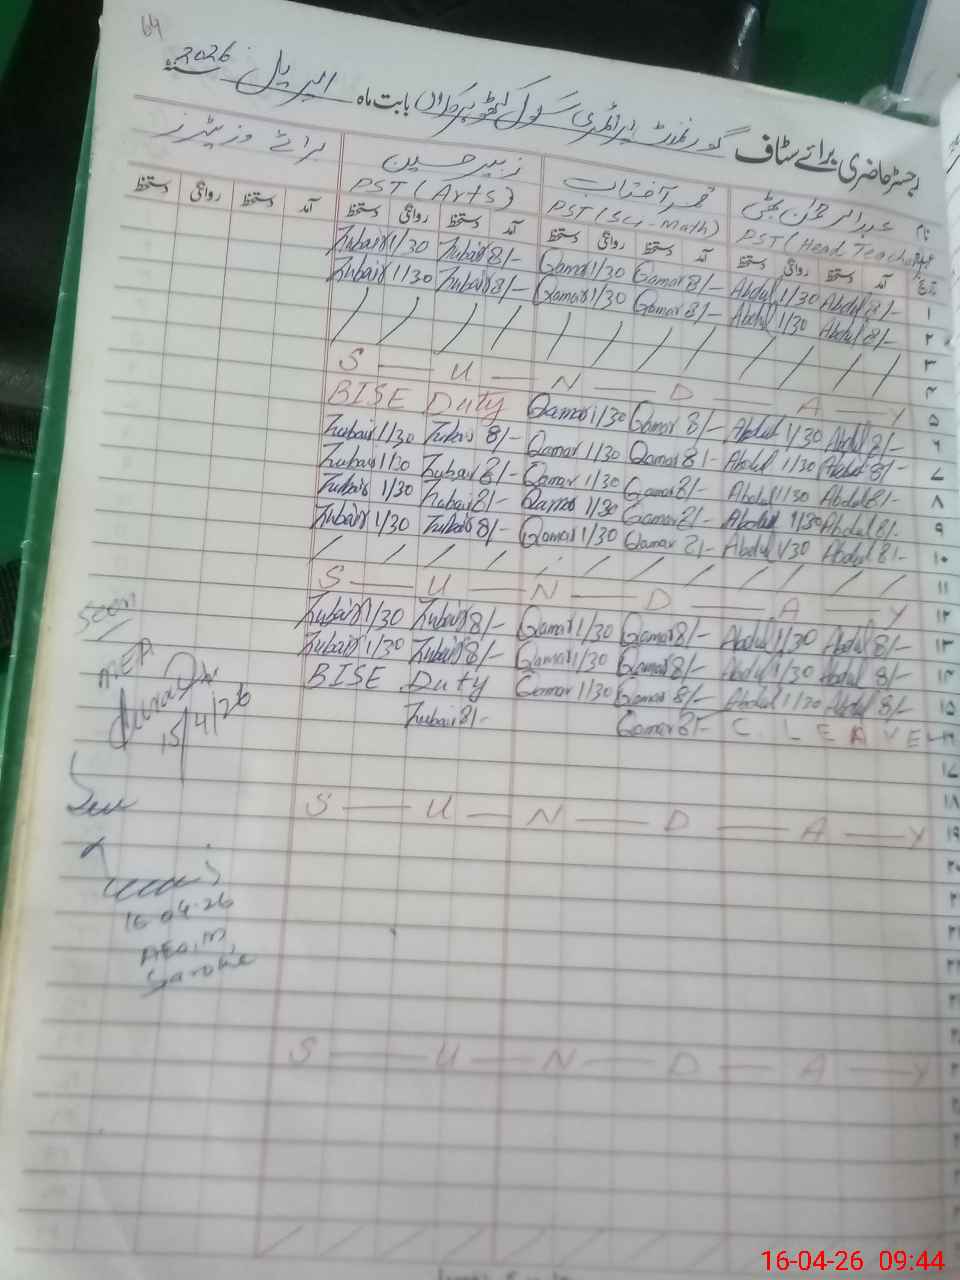 64
رجسٹر حاضری برائے سٹاف گورنمنٹ پرائمری سکول بابت ماہ اپریل سنہ 2026
نام عبدالرحمٰن بھٹی قمر آفتاب زبیر حسین برائے وزیٹرز
PST (Head Teacher) PST (Sci-Math) PST (Arts)
آمد دستخط روانگی دستخط آمد دستخط روانگی دستخط آمد دستخط روانگی دستخط آمد دستخط روانگی دستخط
Zubair 1/30 Zubair 8/- Qamar 1/30 Qamar 8/- Abdul 1/30 Abdul 8/- ۱
Zubair 1/30 Zubair 8/- Qamar 1/30 Qamar 8/- Abdul 1/30 Abdul 8/- ۲
/ / / / / / / / / / / / ۳
S — U — N — D — A — Y
BISE Duty Qamar 1/30 Qamar 8/- Abdul 1/30 Abdul 8/-
Zubair 1/30 Zubair 8/- Qamar 1/30 Qamar 8/- Abdul 1/30 Abdul 8/-
Zubair 1/30 Zubair 8/- Qamar 1/30 Qamar 8/- Abdul 1/30 Abdul 8/-
Zubair 1/30 Zubair 8/- Qamar 1/30 Qamar 8/- Abdul 1/30 Abdul 8/-
Zubair 1/30 Zubair 8/- Qamar 1/30 Qamar 8/- Abdul 1/30 Abdul 8/-
/ / / / / / / / / / / ۱۱
S — U — N — D — A — Y ۱۲
Zubair 1/30 Zubair 8/- Qamar 1/30 Qamar 8/- Abdul 1/30 Abdul 8/- ۱۳
Zubair 1/30 Zubair 8/- Qamar 1/30 Qamar 8/- Abdul 1/30 Abdul 8/- ۱۴
BISE Duty Qamar 1/30 Qamar 8/- Abdul 1/30 Abdul 8/- ۱۵
Zubair 8/- Qamar 8/- C. LEAVE ۱۶
۱۷
۱۸
S — U — N — D — A — Y ۱۹
S — U — N — D — A — Y
Seen
MEA
15/4/26
16-04-26
AEO, M,
Saroke
16-04-26 09:44